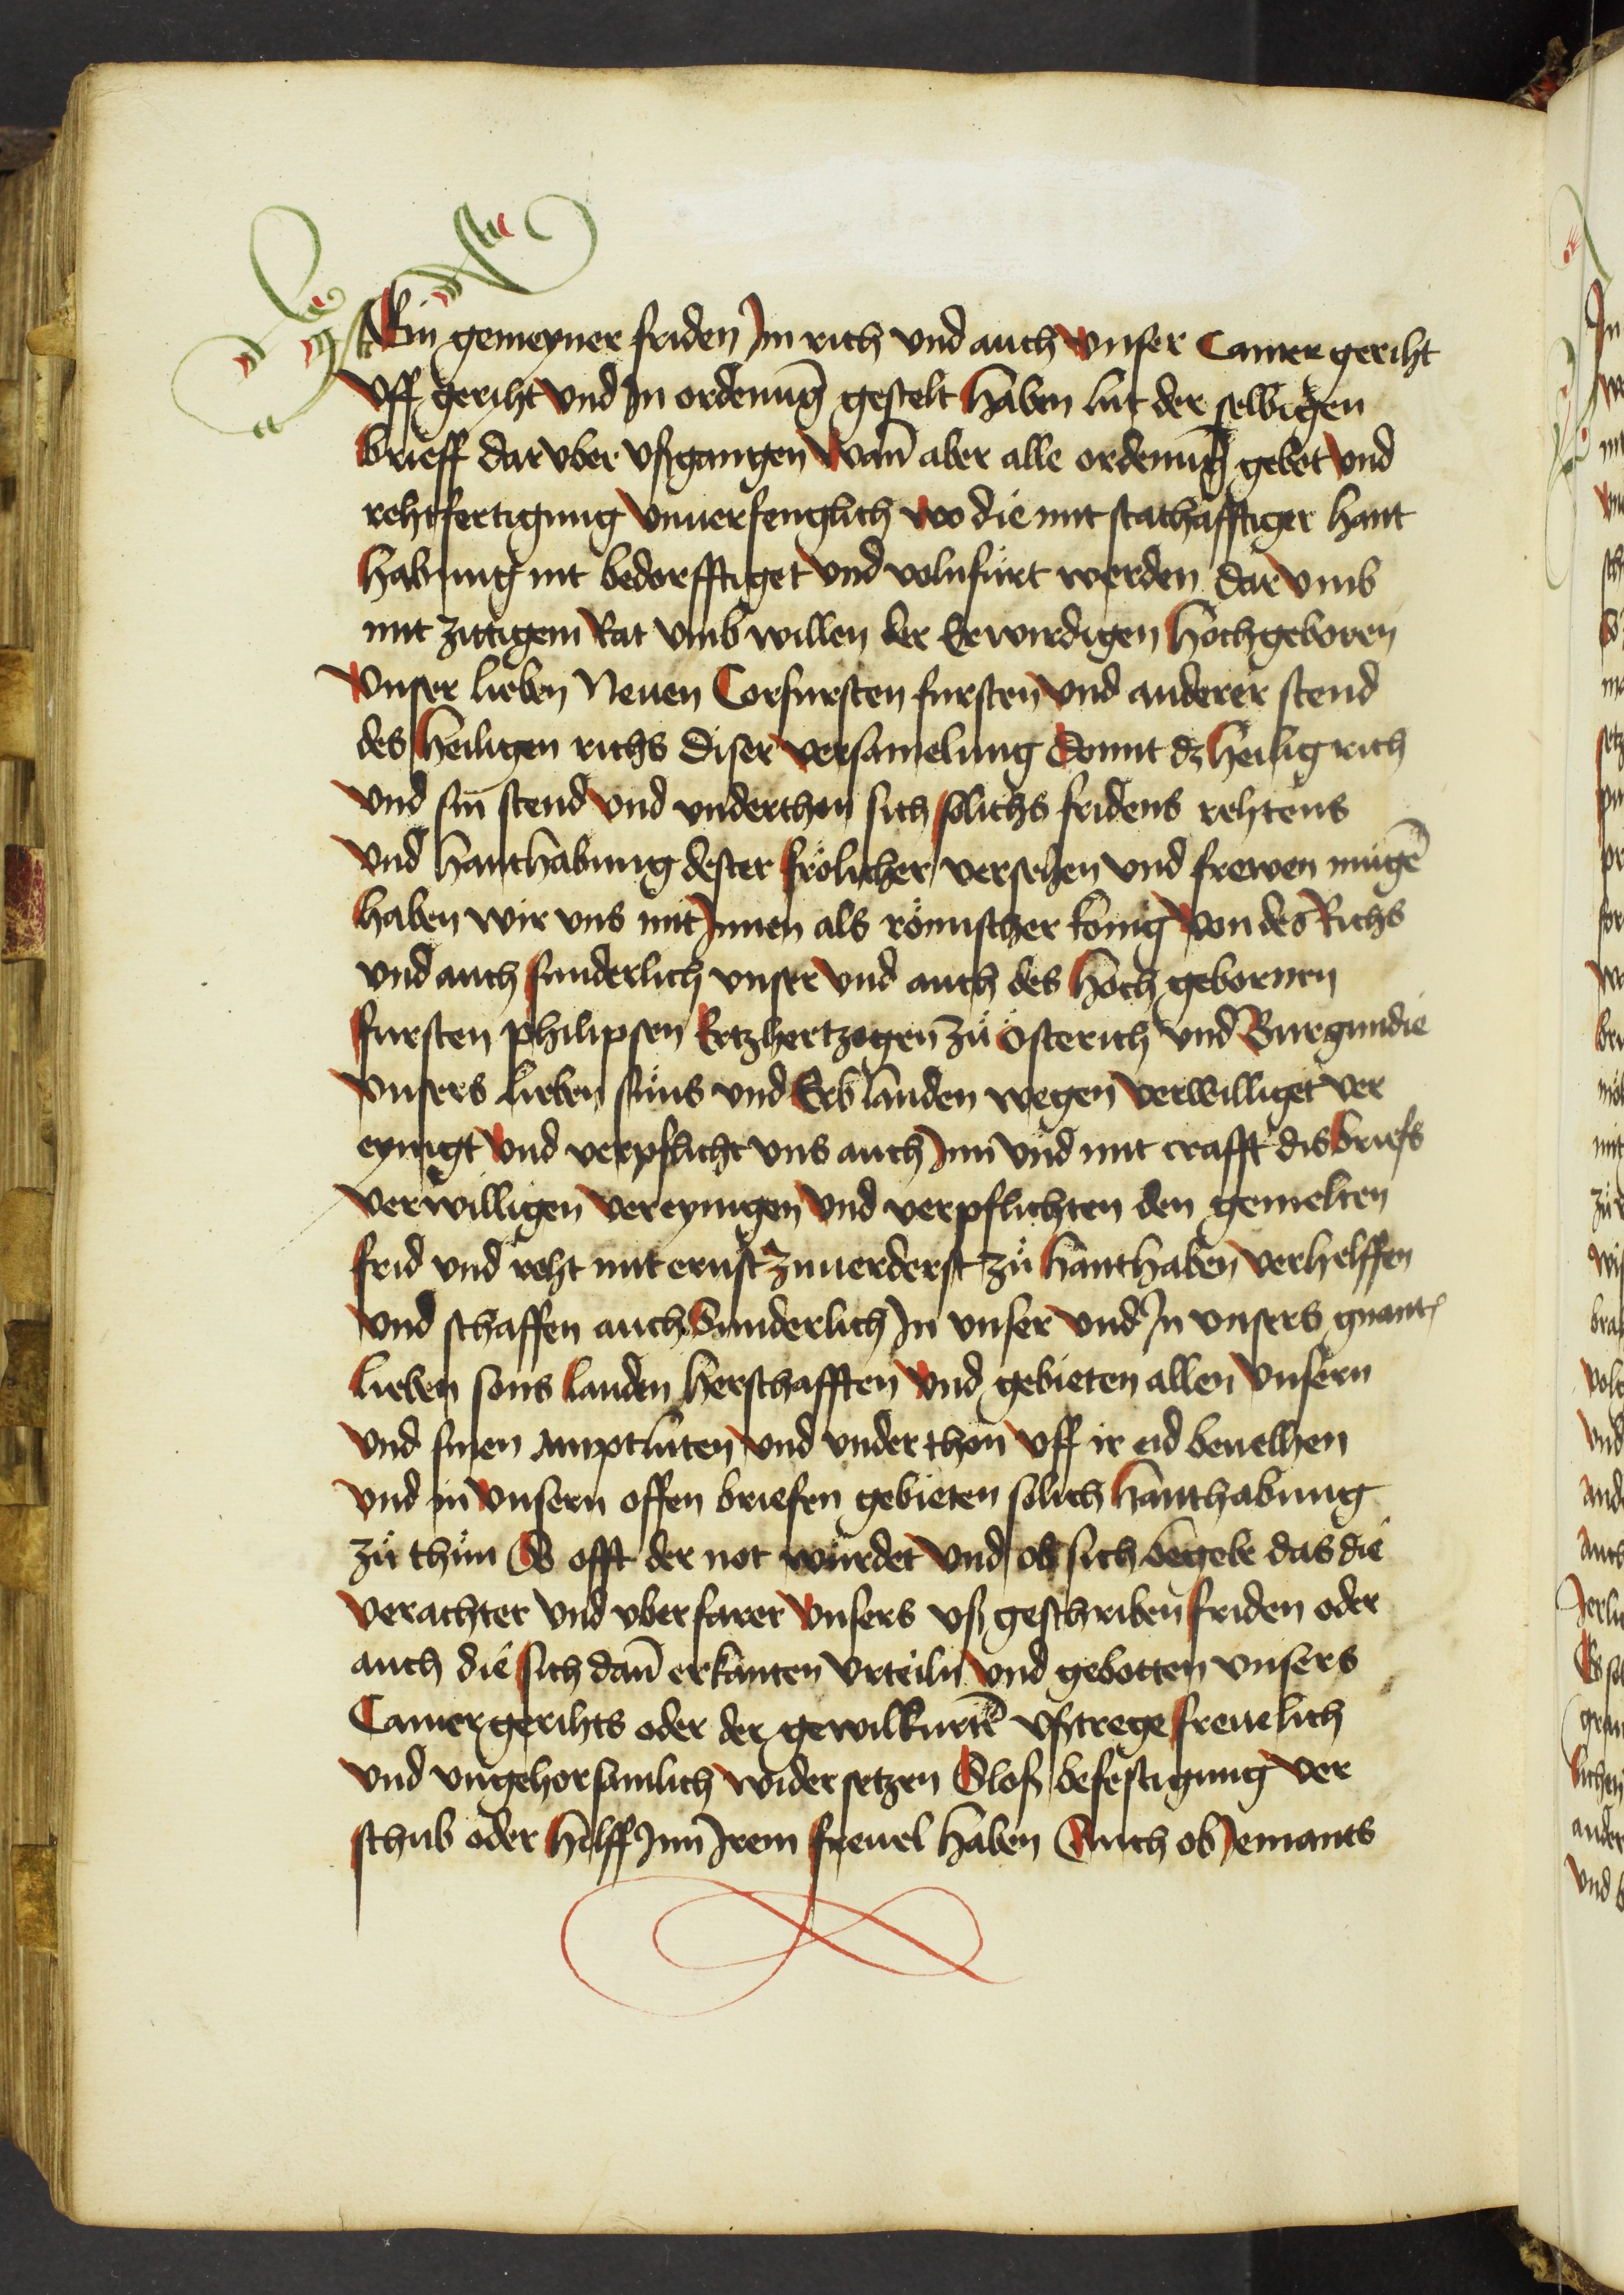 Ein gemeyner friden Jm rich vnd auch vnser Camer geriht
vff geriht vnd Jn ordenūg gestelt haben lut der selbigen
brieff dar vber vßgangen Wañ aber alle ordenūg gebot vnd
rehtfertigung vnuerfenglich wo die mit stathafftiger hant
habung nit bedorfftiget vnd volnfürt werden dar vmb
mit zittigem Rat vmb willen der Erwirdigen Hochgeboren
Vnser lieben Neuen Corfursten fursten vnd anderer stend
des heiligen richs diser versamelung domit dz heilig rich
vnd sin stend vnd vnderthon sich solichs fridens rehtens
vnd hanthabung dester frölicher versehen vnd frewen mügē
haben wir vns mit Jnnen als römischer könig von des Richs
vnd auch sunderlich vnser vnd auch des hoch gebornen
fursten philipsen Ertzhertzogen zů österich vnd Burgundie
vnsers lieben süns vnd Erb landen wegen verwilliget ver
eynigt vnd verpflicht vns auch Jnn vnd mit crafft dis briefs
verwilligen vereynigen vnd verpflichten den gemelten
frid vnd reht mit ernst zuuerderst zů hanthaben verhelffen
vnd schaffen auch Sunderlich Jn vnser vnd Jn vnsers gnant
lieben sons landen herschafften vnd gebieten allen vnsern
vnd sinen amptlüten vnd vnderthon vff ir eid beuelhen
vnd in vnsern offen briefen gebieten solich hanthabung
zů thün So offt der not würdet vnd ob sich begebe das die
verachter vnd vberfarer vnsers vß geschriben friden oder
auch die sich dañ erkanten vrteiln vnd gebotten vnsers
Camergerihts oder der gewilkurtē vßtrege freuelich
vnd vngehorsamlich widersetzen Sloß befestigung ver
schub oder hilff Jnn Jrem freuel haben Auch ob Jemants